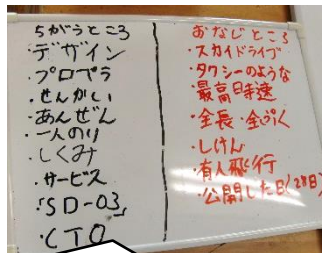 ちがうところ
・デザイン
・プロペラ
・せんかい
・あんぜん
・一人のり
・しくみ
・サービス
・「SD-03」
・CTO
おなじところ
・スカイドライブ
・タクシーのような
・最高時速
・全長・全ぷく
・しけん
・有人飛行
・公開した日(28日)